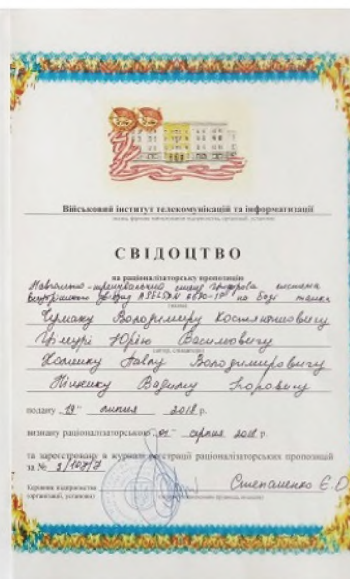 Військовий інститут телекомунікацій та інформатизації
СВІДОЦТВО
на раціоналізаторську пропозицію
Навчально-тренувальний стенд цифрова система
внутрішнього зв'язку на базі танка
Чумаку Володимиру Костянтиновичу
Юрію Васильовичу
Павлу Володимировичу
Вадиму Ігоровичу
подану "19" липня 2018 р.
визнану раціоналізаторською "01" серпня 2018 р.
та зареєстровану в журналі реєстрації раціоналізаторських пропозицій
за №
Керівник підприємства
(організації, установи)
Степаненко Є.О